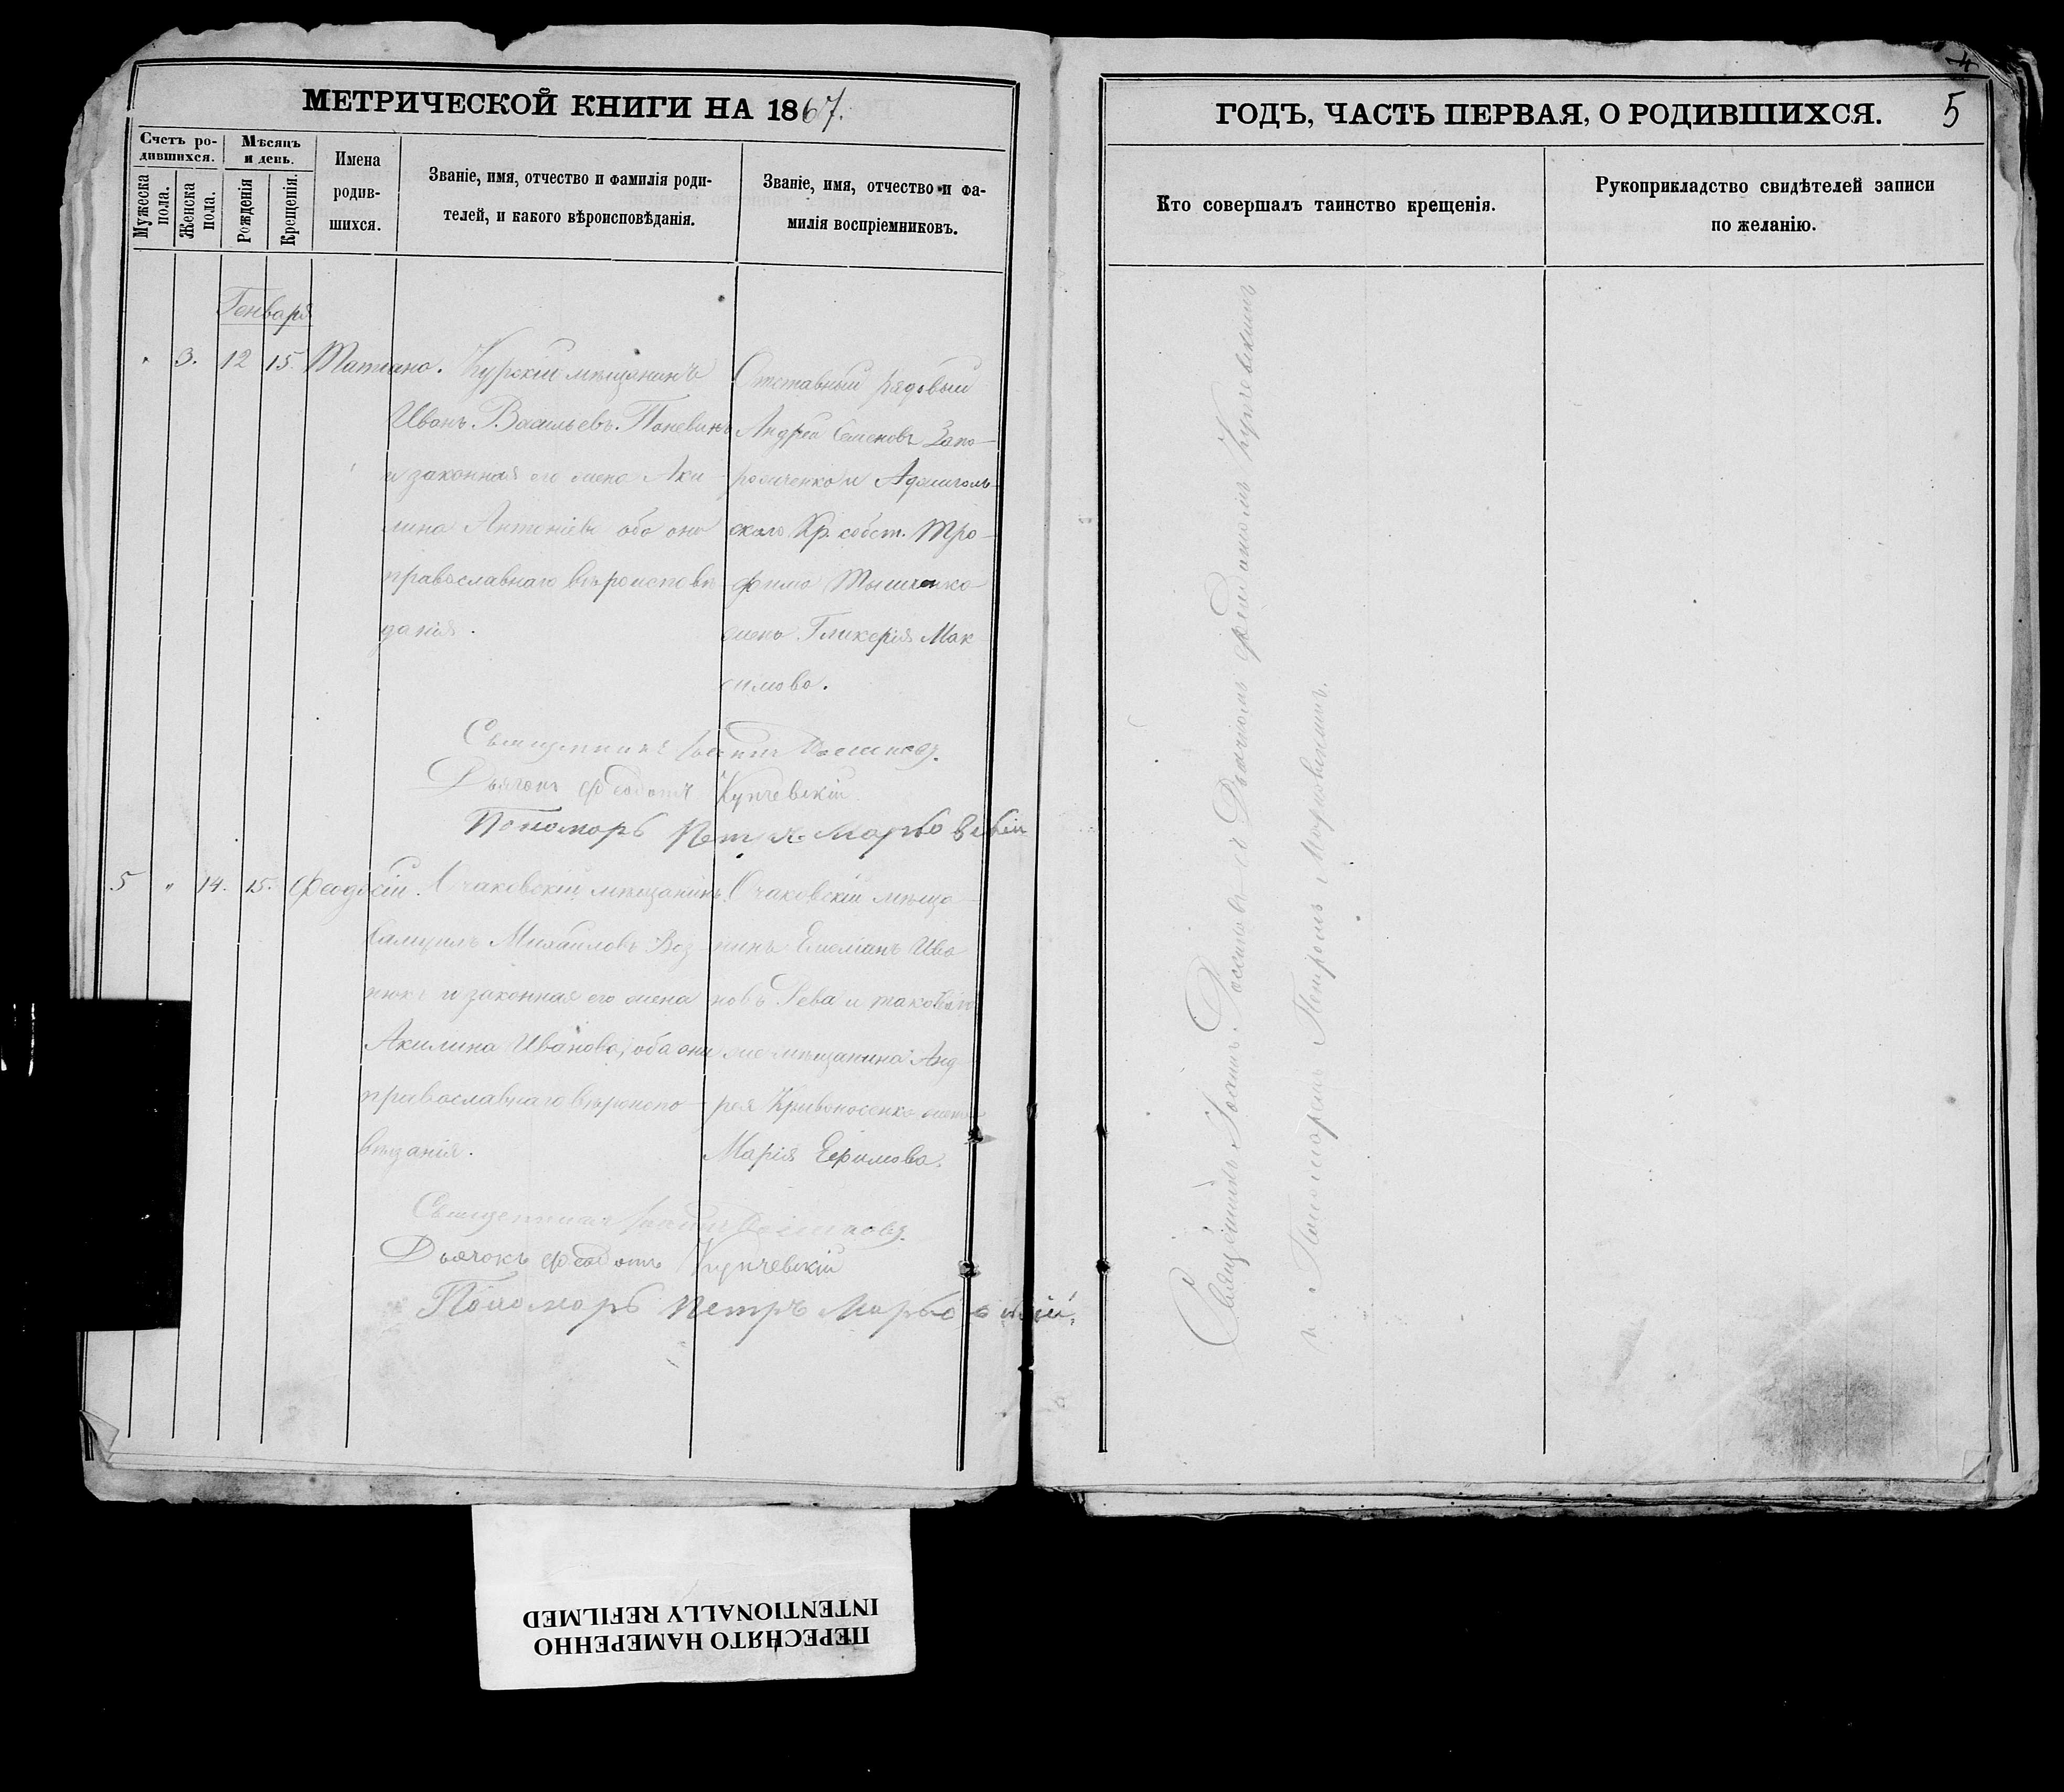 МЕТРИЧЕСКОЙ КНИГИ НА 1867.
Счетъ ро-
дившихся.
Мѣсяцъ
и день.
Мужеска
пола.
Женска
пола.
Рожденія
Крещенія.
Имена
родив-
шихся.
Званіе, имя, отчество и фамилія роди-
телей, и какого вѣроисповѣданія.
Званіе, имя, отчество и фа-
милія воспріемниковъ.
Генваря
" 3. 12 15. Татіана.
Курскій мѣщанинъ
Иванъ Васильевъ
и законная его жена Аки
лина Антоніева оба они
православнаго вѣроисповѣ
данія.
Отставный рядовый
Андрей Семеновъ Запо-
рожченко и
скаго Кр. собст. Тро-
фима Тышченка
жена Гликерія Мак
симова.
Священникъ Іоаннъ
Дьячокъ Феодотъ Купчевскій
Пономарь Петръ
5 " 14. 15. Феодосій.
Очаковскій мѣщанинъ
Самуилъ Михайловъ Воз-
нюкъ и законная его жена
Акилина Иванова, оба они
православнаго вѣроиспо-
вѣданія.
Очаковскій мѣща-
нинъ Емеліанъ Ива
новъ Рева и таковаго
же мѣщанина Анд
рея Кривоносенка жена
Марія Ефимова.
Священникъ Іоаннъ
Дьячокъ Феодотъ Купчевскій
Пономарь Петръ
ГОДЪ, ЧАСТЬ ПЕРВАЯ, О РОДИВШИХСЯ.
4
5
Кто совершалъ таинство крещенія.
Рукоприкладство свидѣтелей записи
по желанію.
Священникъ Іоаннъ съ Дьячкомъ Феодотомъ Купчевскимъ
и Пономаремъ Петромъ
ПЕРЕСНЯТО НАМЕРЕННО
INTENTIONALLY REFILMED